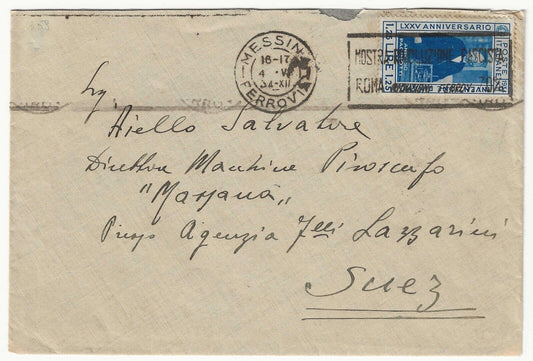 LXXV ANNIVERSARIO
POSTE ITALIANE
1.25 LIRE 1.25
MESSINA
16-17
4 VI
34-XII
FERROVIA
MOSTRA RIVOLUZIONE FASCISTA
ROMA
Sig
Aiello Salvatore
Direttore Macchine Piroscafo
"Massaua"
Presso Agenzia Flli Lazzarini
Suez